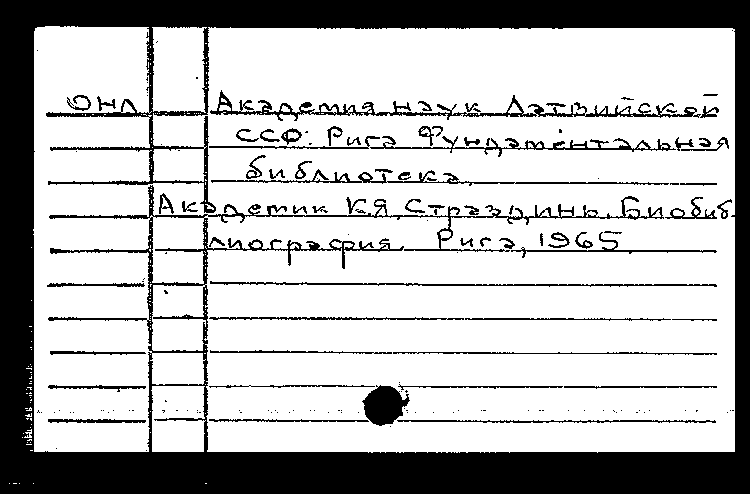 ОНЛ Академия наук Латвийской
ССФ. Рига Фундаментальная
библиотека.
Академик К.Я. Страздинь. Биобиб-
лиография. Рига, 1965